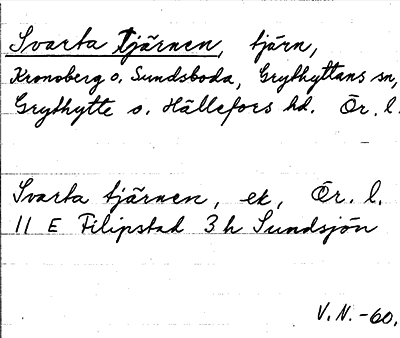 Svarta tjärnen, tjärn,
Kronoberg o. Sundsboda, Grythyttans sn,
Grythytte o. Hällefors hd. Ör. l.
Svarta tjärnen, ek, Ör. l.
11 E Filipstad 3 h Sundsjön
V.N.-60.